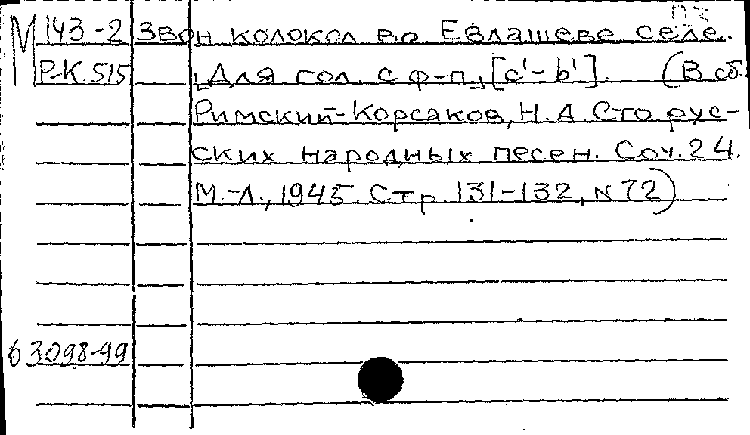 М 143-2 Звон колокол во Евлашеве селе.
Р-К 515 [Для гол. с ф-п., [c'-b']. (В сб.
Римский-Корсаков, Н.А. Сто рус-
ских народных песен. Соч. 24.
М.-Л., 1945. Стр. 131-132, N 72)
63098-99